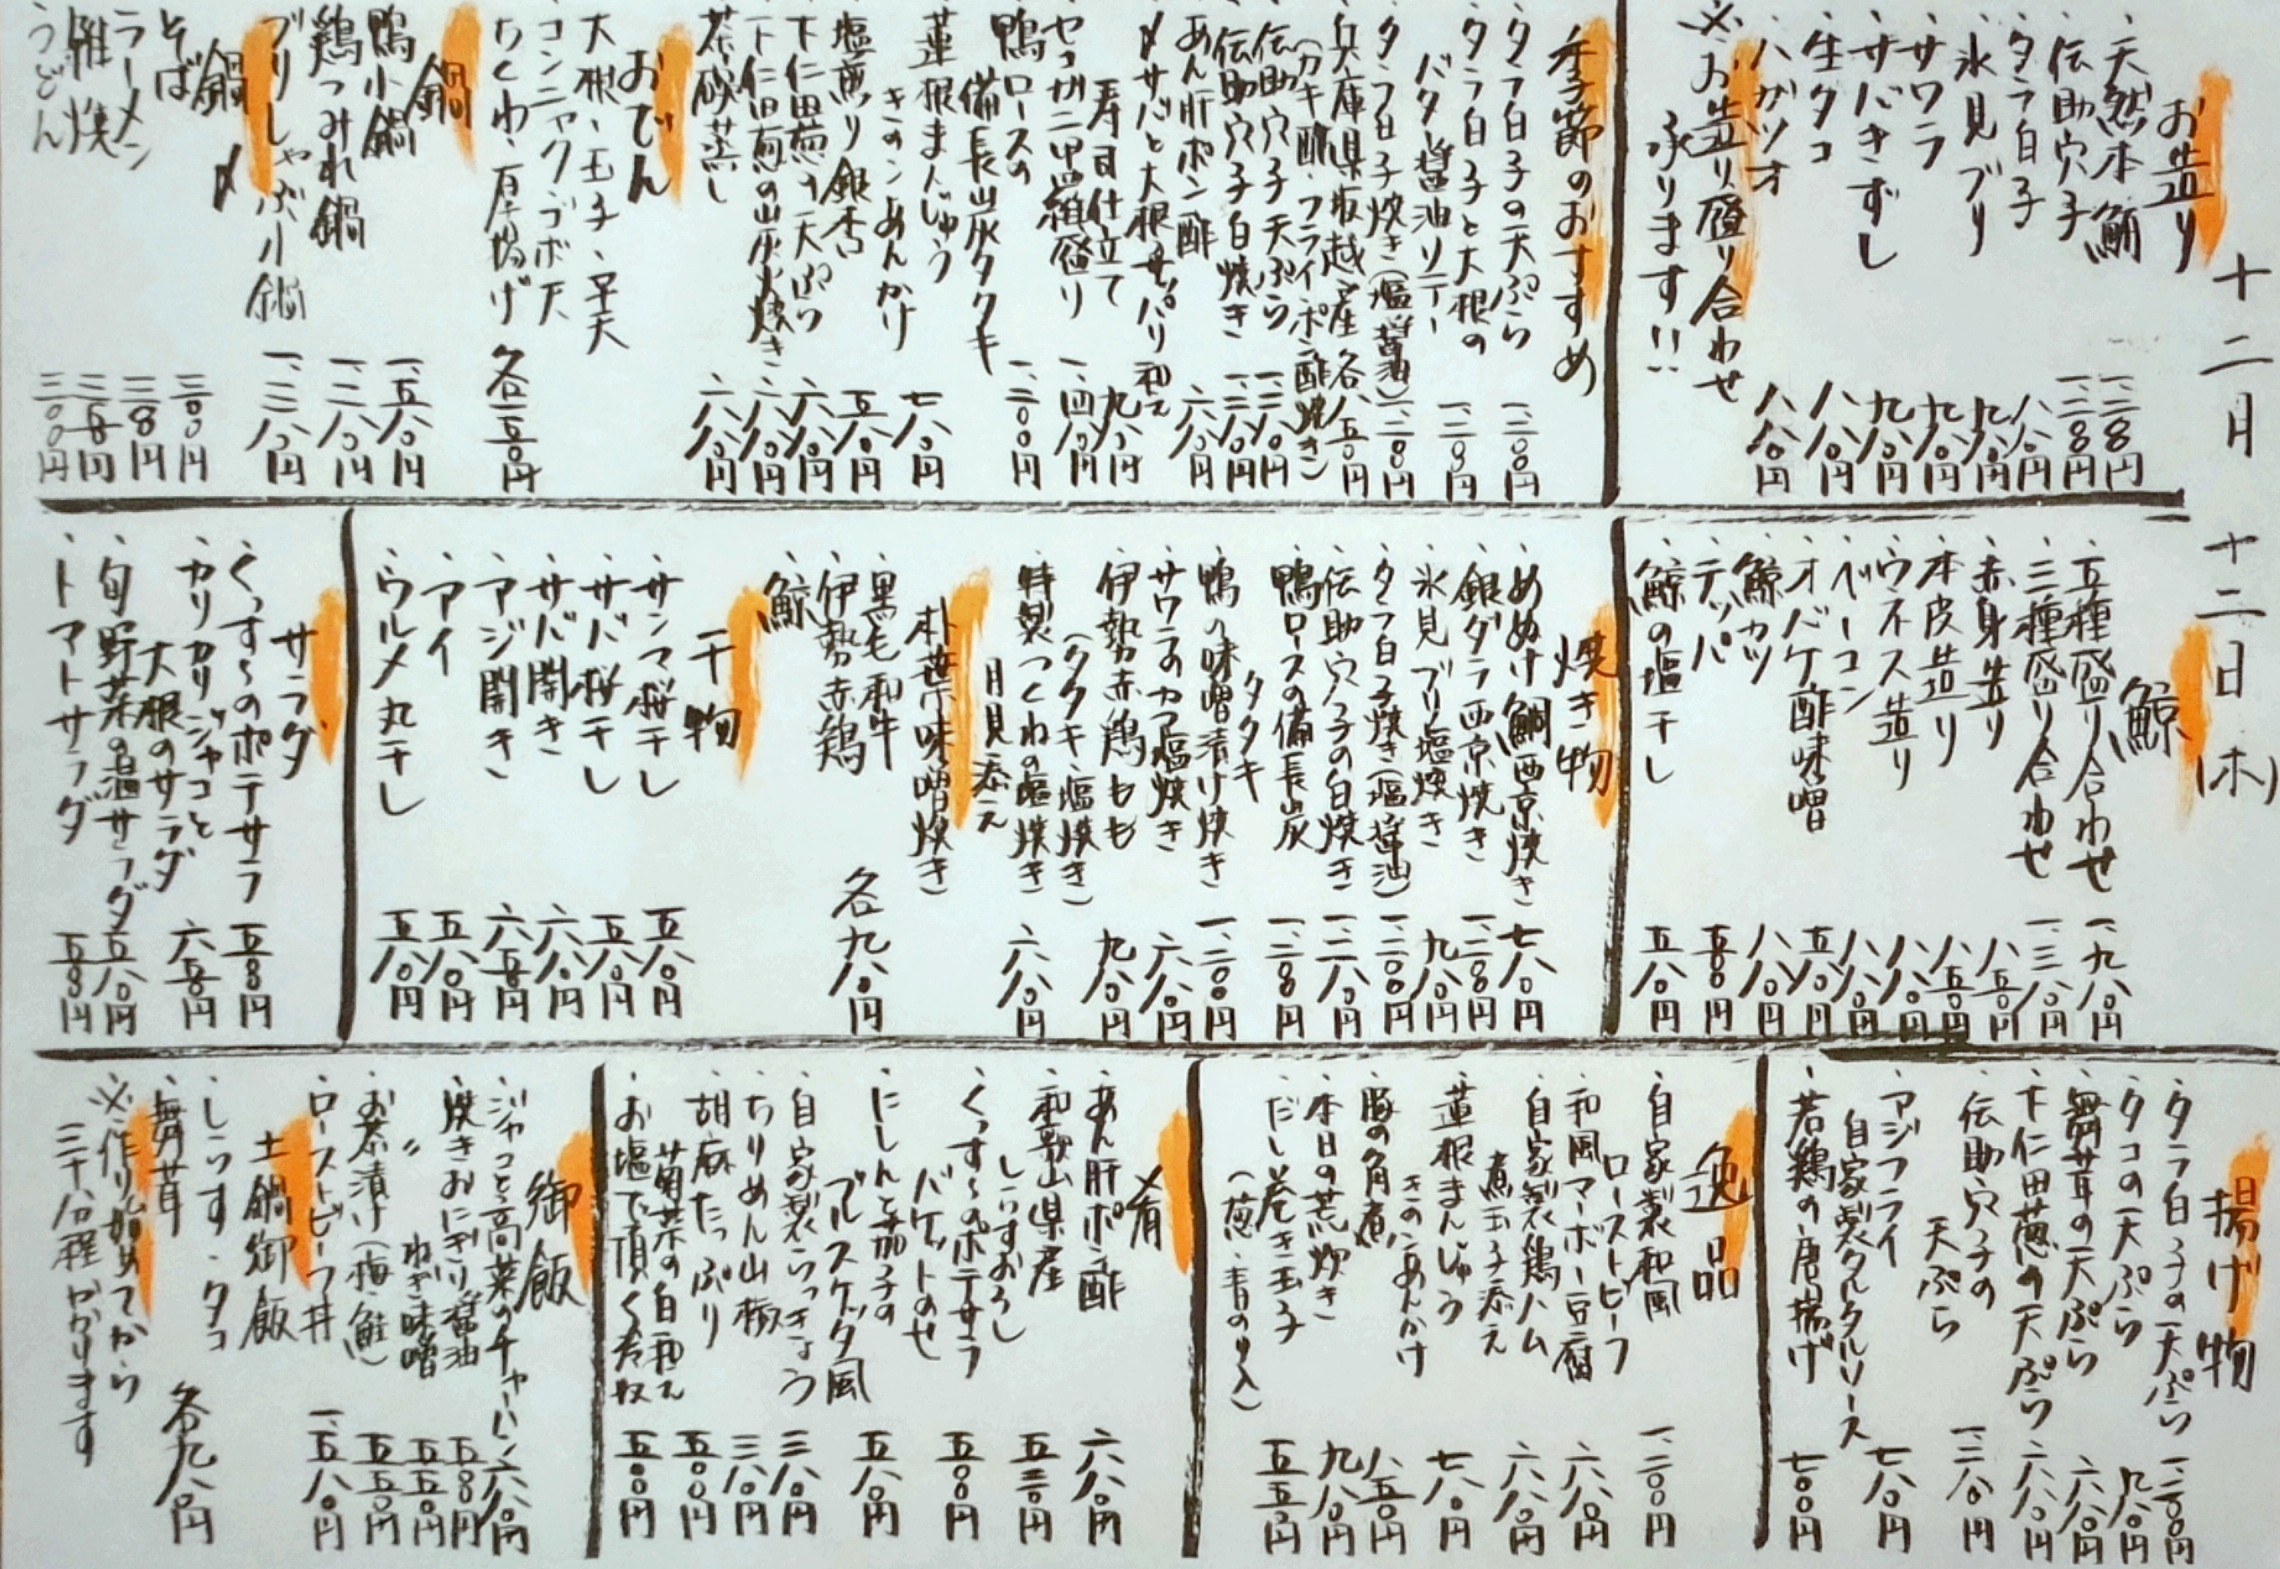 十二月十二日(木)
お造り
・天然本鮪 一、二八〇円
・伝助穴子 一、二八〇円
・タラ白子 八八〇円
・氷見ブリ 九八〇円
・サワラ 九八〇円
・サバきずし 九八〇円
・生タコ 八八〇円
・ハガツオ 八八〇円
※お造り盛り合わせ
承ります!!
季節のおすすめ
・タラ白子の天ぷら 一、二〇〇円
・タラ白子と大根の
バター醤油ソテー 一、二〇〇円
・タラ白子焼き(塩・醤油) 一、二〇〇円
・兵庫県坂越産 各八五〇円
(カキ酢・フライ・ポン酢焼き)
・伝助穴子天ぷら 一、三八〇円
・伝助穴子白焼き 一、二八〇円
・あん肝ポン酢 六八〇円
・〆サバと大根のサッパリ和え
寿司仕立て 九八〇円
・セコガニ甲羅盛り 一、四八〇円
・鴨ロースの
備長炭タタキ 一、二〇〇円
・蓮根まんじゅう
きのこあんかけ 七八〇円
・塩煎り銀杏 五八〇円
・下仁田葱の天ぷら 六八〇円
・下仁田葱の炭火焼き 六八〇円
・茶碗蒸し 六八〇円
おでん
・大根・玉子・半天
・コンニャク・ゴボ天
・ちくわ・厚揚げ 各二五〇円
鍋
・鴨小鍋 一、五八〇円
・鶏つみれ鍋 一、二八〇円
・ブリしゃぶ小鍋 一、三八〇円
鍋〆
・そば 三〇〇円
・ラーメン
・雑炊
・うどん 三〇〇円
鯨
・五種盛り合わせ 一、九八〇円
・三種盛り合わせ 一、三八〇円
・赤身造り 八五〇円
・本皮造り 八五〇円
・ウネス造り 八八〇円
・ベーコン 八八〇円
・オバケ酢味噌 五八〇円
・鯨カツ 八八〇円
・テッパ 五〇〇円
・鯨の塩干し 五八〇円
焼き物
・めぬけ鯛西京焼き 七八〇円
・銀ダラ西京焼き 一、二〇〇円
・氷見ブリ塩焼き 九八〇円
・タラ白子焼き(塩・醤油) 一、二〇〇円
・伝助穴子の白焼き 一、二八〇円
・鴨ロースの備長炭
タタキ 一、二〇〇円
・鴨の味噌漬け焼き 一、二〇〇円
・サワラのカマ塩焼き 六八〇円
・伊勢赤鶏もも 九八〇円
(タタキ・塩焼き)
・特製つくねの塩焼き
月見添え 六八〇円
朴葉味噌焼き
・黒毛和牛
・伊勢赤鶏 各九八〇円
・鯨
干物
・サンマ桜干し 五八〇円
・サバ桜干し 五八〇円
・サバ開き 六八〇円
・アジ開き 六五〇円
・アイ 五八〇円
・ウルメ丸干し 五八〇円
サラダ
・くっすーのポテサラ 五〇〇円
・カリカリジャコと
大根のサラダ 六五〇円
・旬野菜の温サラダ 五八〇円
・トマトサラダ 五〇〇円
揚げ物
・タラ白子の天ぷら 一、二〇〇円
・タコの天ぷら 九八〇円
・舞茸の天ぷら 六八〇円
・下仁田葱の天ぷら 六八〇円
・伝助穴子の
天ぷら 一、三八〇円
・アジフライ
自家製タルタルソース 七八〇円
・若鶏の唐揚げ 七〇〇円
逸品
・自家製和風
ローストビーフ 一、二〇〇円
・和風マーボー豆腐 六八〇円
・自家製鶏ハム
煮玉子添え 六八〇円
・蓮根まんじゅう
きのこあんかけ 七八〇円
・豚の角煮 八五〇円
・本日の荒炊き 九八〇円
・だし巻き玉子 五五〇円
(葱・青のり入)
〆肴
・あん肝ポン酢 六八〇円
・和歌山県産
しらすおろし 五三〇円
・くっすーのポテサラ
バゲットのせ 五〇〇円
・にしんと茄子の
ブルスケッタ風 五八〇円
・自家製らっきょう 三八〇円
・ちりめん山椒 三八〇円
・胡麻たっぷり
菊菜の白和え 五〇〇円
・お塩で頂く冷奴 五〇〇円
御飯
・ジャコと高菜のチャーハン 六八〇円
・焼きおにぎり醤油 五〇〇円
・〃 ねぎ味噌 五五〇円
・お茶漬け(梅・鮭) 五五〇円
・ローストビーフ丼 一、五八〇円
土鍋御飯
・しらす・タコ
・舞茸 各九八〇円
※作り始めてから
三十分程かかります